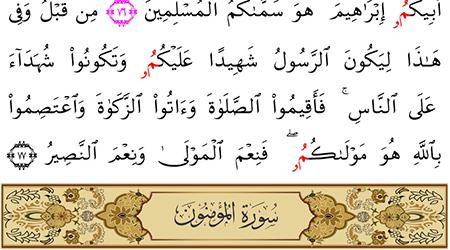 أَبِيكُمُۥ إِبْرَٰهِيمَ هُوَ سَمَّىٰكُمُ ٱلْمُسْلِمِينَ ٧٦ مِن قَبْلُ وَفِى
هَـٰذَا لِيَكُونَ ٱلرَّسُولُ شَهِيدًا عَلَيْكُمُۥ وَتَكُونُوا۟ شُهَدَآءَ
عَلَى ٱلنَّاسِ ۚ فَأَقِيمُوا۟ ٱلصَّلَوٰةَ وَءَاتُوا۟ ٱلزَّكَوٰةَ وَٱعْتَصِمُوا۟
بِٱللَّهِ هُوَ مَوْلَىٰكُمُۥ ۖ فَنِعْمَ ٱلْمَوْلَىٰ وَنِعْمَ ٱلنَّصِيرُ ٧٧
سُورَةُ المُؤْمِنُونَ